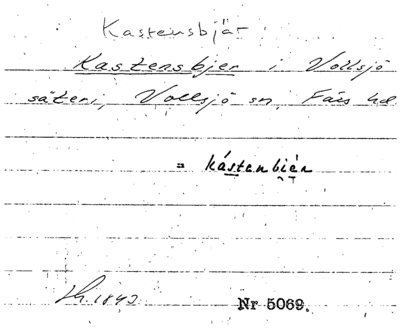 Kastensbjär
Kastensbjer i Vollsjö
säteri, Vollsjö sn, Färs hd
= kástenbiér
1842
Nr 5069.